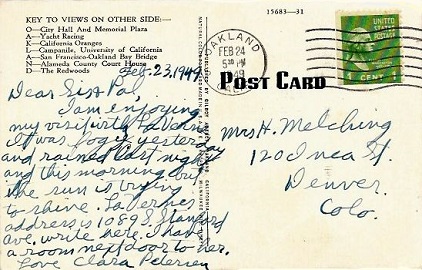 KEY TO VIEWS ON OTHER SIDE:—
O—City Hall And Memorial Plaza
A—Yacht Racing
K—California Oranges
L—Campanile, University of California
A—San Francisco-Oakland Bay Bridge
N—Alameda County Court House
D—The Redwoods
Feb. 23, 1949
Dear Sis & Pal,
I am enjoying
my visit with La Verne
It was foggy yesterday
and rained last night
and this morning but
the sun is trying
to shine. La Vernes
address is 1089 S. Stanford
Ave. write here. I have
a room next door to her.
Love Clara Petersen
15683—31
OAKLAND
FEB 24
5 30 PM
1949
CALIF.
UNITED
STATES
POSTAGE
1 CENT 1
POST CARD
Mrs H. Melching
120 Inca St.
Denver.
Colo.